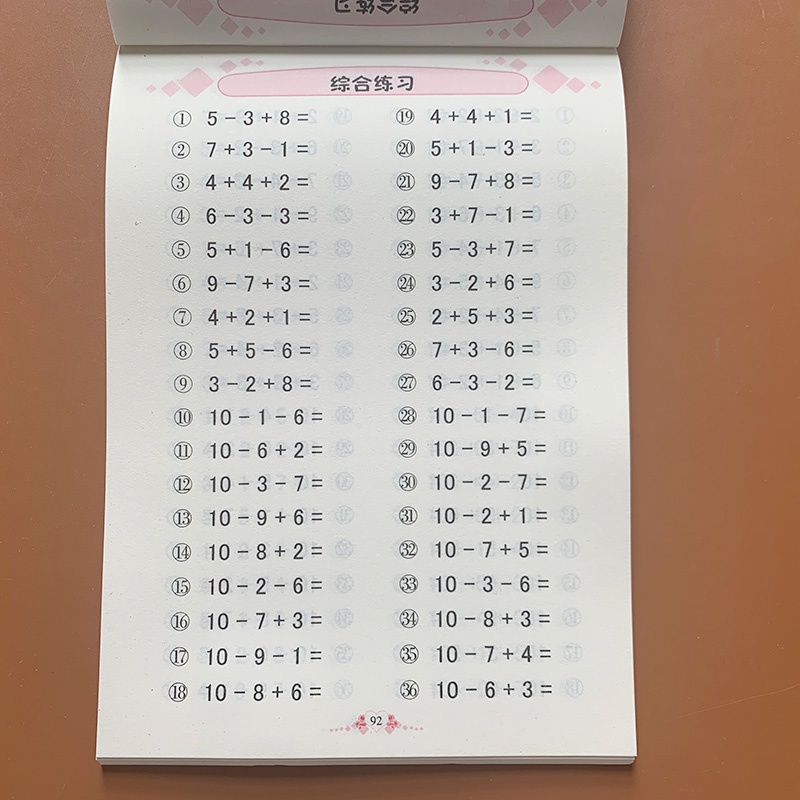 综合练习
综合练习
① 5－3＋8＝
② 7＋3－1＝
③ 4＋4＋2＝
④ 6－3－3＝
⑤ 5＋1－6＝
⑥ 9－7＋3＝
⑦ 4＋2＋1＝
⑧ 5＋5－6＝
⑨ 3－2＋8＝
⑩ 10－1－6＝
⑪ 10－6＋2＝
⑫ 10－3－7＝
⑬ 10－9＋6＝
⑭ 10－8＋2＝
⑮ 10－2－6＝
⑯ 10－7＋3＝
⑰ 10－9－1＝
⑱ 10－8＋6＝
⑲ 4＋4＋1＝
⑳ 5＋1－3＝
㉑ 9－7＋8＝
㉒ 3＋7－1＝
㉓ 5－3＋7＝
㉔ 3－2＋6＝
㉕ 2＋5＋3＝
㉖ 7＋3－6＝
㉗ 6－3－2＝
㉘ 10－1－7＝
㉙ 10－9＋5＝
㉚ 10－2－7＝
㉛ 10－2＋1＝
㉜ 10－7＋5＝
㉝ 10－3－6＝
㉞ 10－8＋3＝
㉟ 10－7＋4＝
㊱ 10－6＋3＝
92